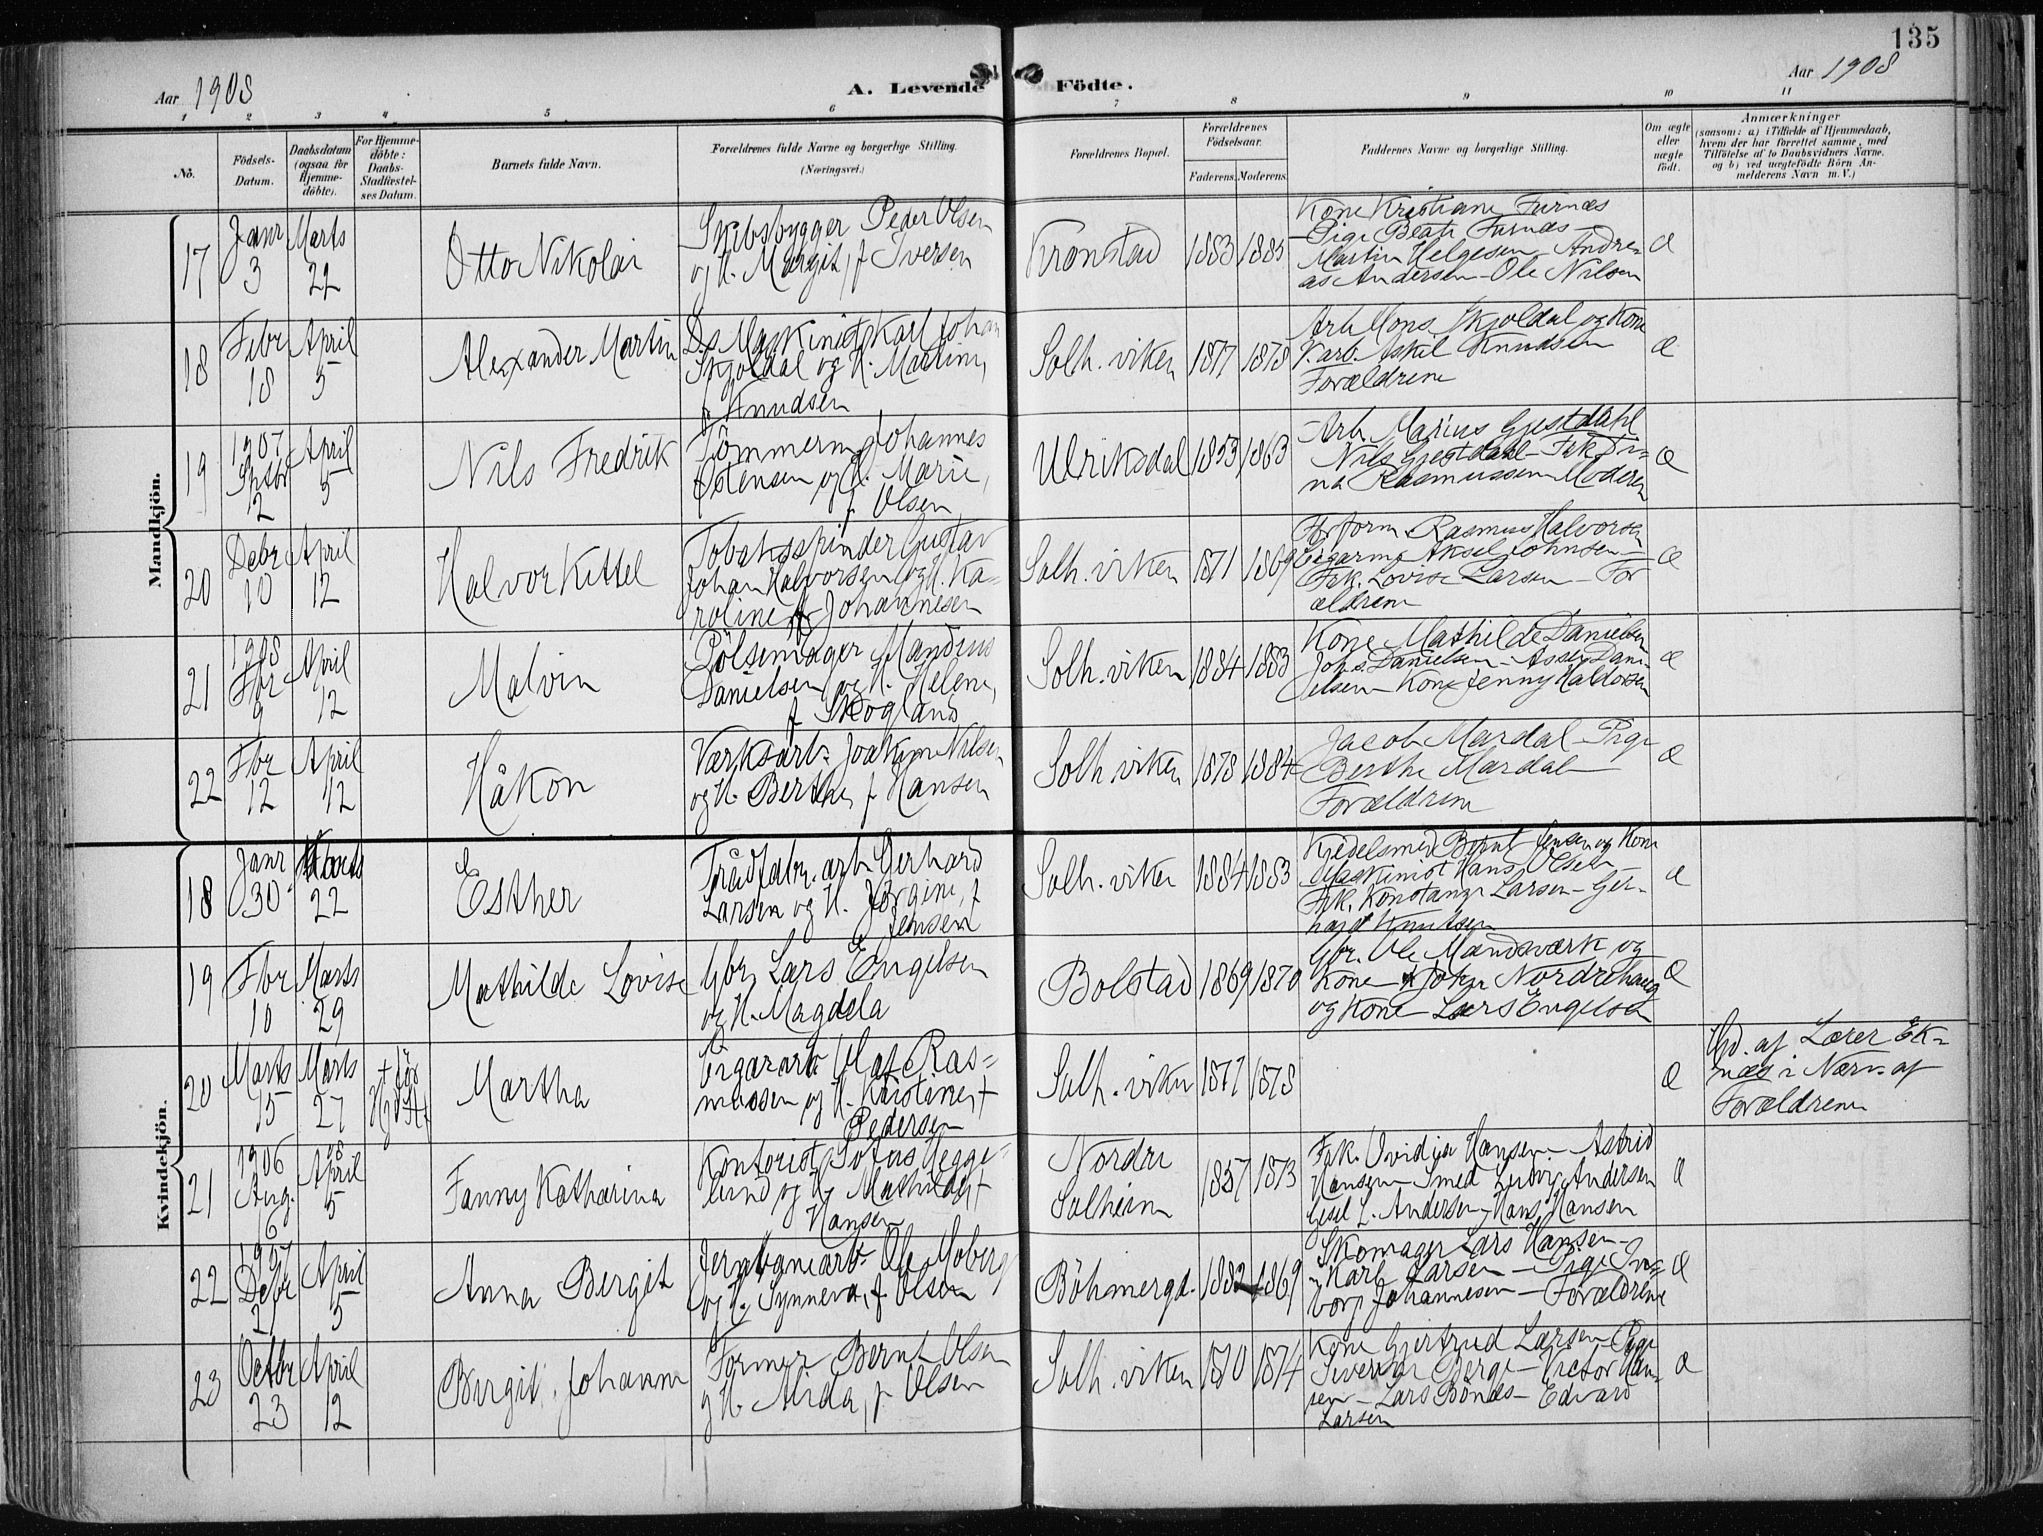 135
Aar 1908
A. Levende Födte.
Aar 1908
1 2 3 4 5 6 7 8 9 10 11
No.
Födsels-Datum.
Daabsdatum (ogsaa for Hjemme-döbte).
For Hjemme-döbte: Daabs-Stadfæstel-ses Datum.
Barnets fulde Navn.
Forældrenes fulde Navne og borgerlige Stilling.
(Næringsvei.)
Forældrenes Bopæl.
Forældrenes Födselsaar.
Faderens. Moderens.
Faddernes Navne og borgerlige Stilling.
Om ægte eller uægte födt.
Anmærkninger
(saasom: a) i Tilfælde af Hjemmedaab,
hvem der har forrettet samme, med
Tilföielse af to Daabsvidners Navne.
og b) ved uægtefödte Börn An-
melderens Navn m. V.)
Mandkjön.
17 Janr 3 Marts 22 Otto Nikolai
Skibsbygger Peder Olsen
og H. Margit, f Iversen
Kronstad 1883 1885
Kone Kristiane Furnæs
Pige Beate Furnæs
Martin Helgesen Andre-
as Andersen - Ole Nilsen
Æ
18 Febr 18 April 5 Alexander Martin
Ds Maskinist Karl Johan
Skjoldal og H. Martine,
f Knudsen
Solh. viken 1877 1878
Arb Mons Skjoldal og Kone
Askel Knudsen
Forældrene
Æ
19 1907 12 April 5 Nils Fredrik
Tömmerm Johannes
Östensen og H. Marie,
f. Olsen
Ulriksdal 1853 1863
Arb. Marius Gjestdahl
Nils Gjestdahl - Frk Ti-
na Rasmussen Moderen
Æ
20 Debr 10 April 12 Halvor Kittel
Tobaksspinder Gustav
Johan Halvorsen og H. Ka-
roline f Johannesen
Solh. viken 1871 1869
Rasmus Halvorsen
Aksel Johnsen
Frk. Lovise Larsen - For
ældrene
Æ
21 1908 Fbr 9 April 12 Malvin
Pölsemager Mandius
Danielsen og H. Helene,
f Skogland
Solh. viken 1884 1883
Kone Mathilde Danielsen
Johs. Danielsen - Asser Dani-
elsen - Kone Jenny Haldorsen
Æ
22 Fbr 12 April 12 Håkon
Værksarb. Joakim Nilsen
og H. Berthe, f Hansen
Solh viken 1878 1884
Jacob Mardal - Pige
Berthe Mardal
Forældrene
Æ
Kvindekjön.
18 Janr 30 Marts 22 Esther
Trådfabr. arb Gerhard
Larsen og H. Jörgine, f
Jensen
Solh. viken 1884 1883
Kjedelsmed Bernt Jensen og Kone
Maskinist Hans Olsen
Frk. Konstanse Larsen - Ger-
hard Knutsen
Æ
19 Fbr 10 Marts 29 Mathilde Lovise
Gbr Lars Engelsen
og H. Magdela
Bolstad 1869 1870
Gbr. Ole Mandsværk og
Kone Johs Nordrehaug
og Kone Lars Engelsen
Æ
20 Marts 15 Marts 27
+ för
Martha
Cigararb Olaf Ras-
mussen og H. Kristine, f
Pedersen
Solh. viken 1877 1878
Æ
Hd. af Lærer Ek-
næs i Nærv. af
Forældrene
21 1906 Aug. 6 08 April 5 Fanny Katharina
Kontorist Sofus Hegge-
lund og H. Mathilde, f
Hansen
Nordre
Solheim
1857 1873
Frk. Ovidia Hansen - Astrid
Hansen Smed Ludvig Andersen
L. Andersen - Hans Hansen
Æ
22 1907 Debr 27 April 5 Anna Bergit
Jernbanearb. Ole Moberg
og H. Synneva, f Olsen
Böhmergd. 1882 1869
Skomager Lars Hansen -
Karl Larsen - Pige
Johannesen - Forældrene
Æ
23 Octbr 23 April 12 Birgit Johanne
Former Bernt Olsen
og H. Alida, f Olsen
Solh. viken 1870 1874
Kone Gjertrud Larsen Pige
Berge - Victor Han-
sen - Lars Bönes - Edvard
Larsen
Æ